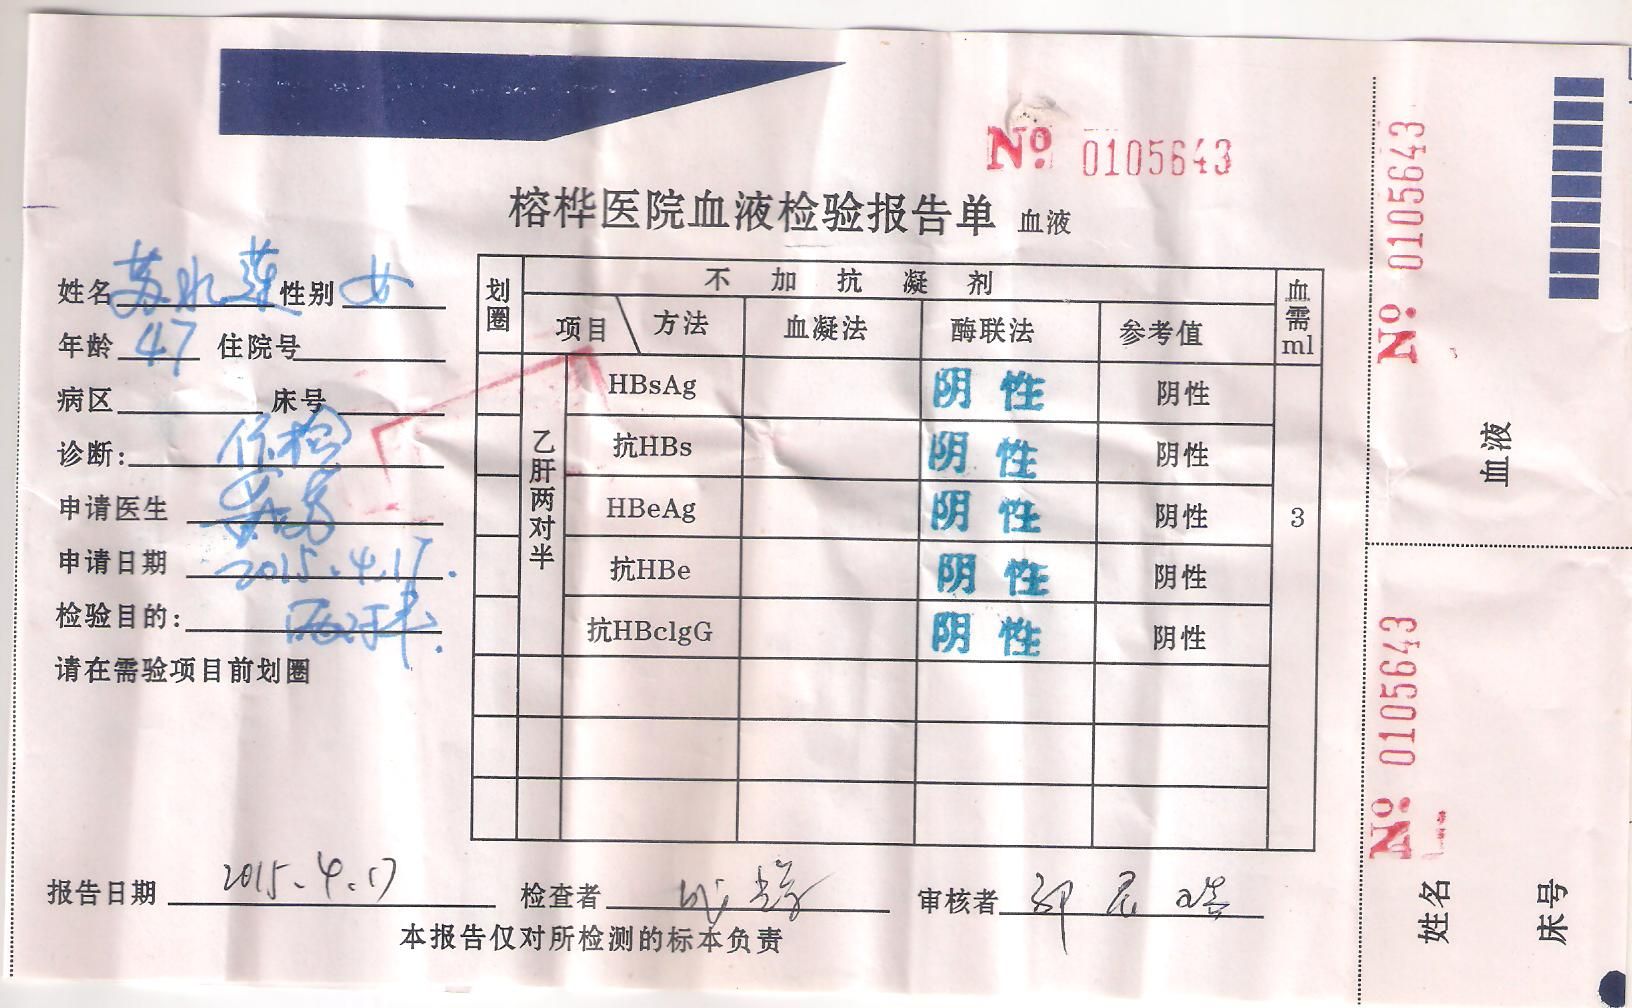 No 0105643
榕桦医院血液检验报告单 血液
姓名 苏水莲 性别 女
年龄 47 住院号
病区 床号
诊断:
申请医生
申请日期 2015.4.17.
检验目的: 两对半.
请在需验项目前划圈
划圈 不加抗凝剂 血需ml
项目 方法 血凝法 酶联法 参考值
乙肝两对半 3
HBsAg 阴性 阴性
抗HBs 阴性 阴性
HBeAg 阴性 阴性
抗HBe 阴性 阴性
抗HBclgG 阴性 阴性
报告日期 2015.4.17 检查者 审核者
本报告仅对所检测的标本负责
No 0105643
血液
No 0105643
姓名
床号